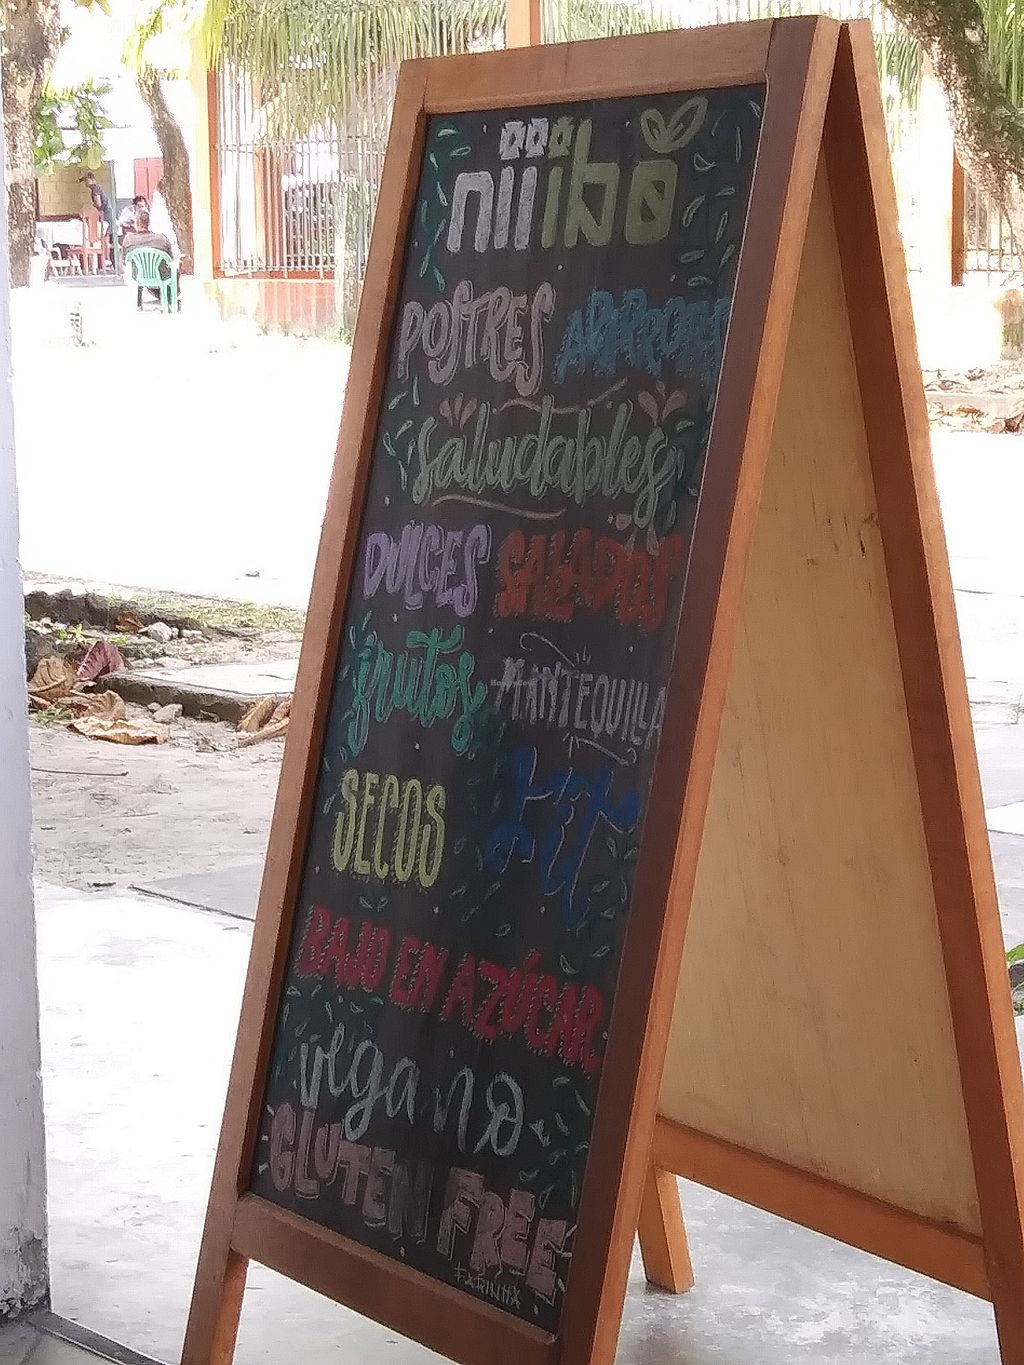 niibo
POSTRES
saludables
DULCES SALADOS
frutos MANTEQUILLA
SECOS
BAJO EN AZÚCAR
vegano
GLUTEN FREE
FARINHA